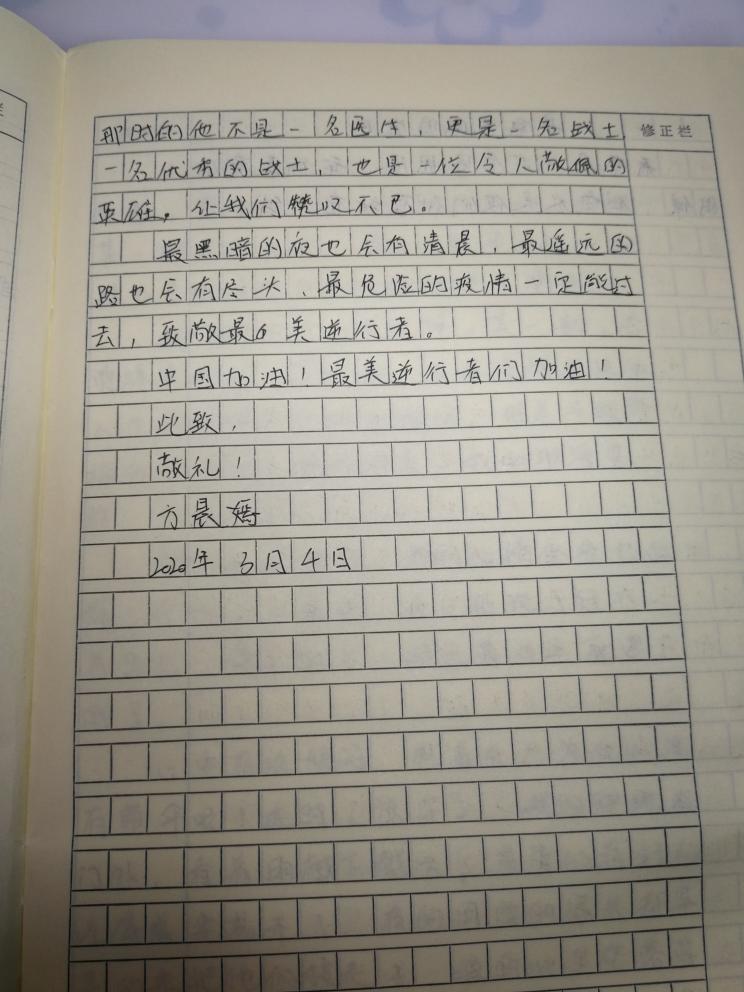 那时的他不是一名医生，更是一名战士
修正栏
一名优秀的战士，也是一位令人敬佩的
英雄，让我们赞叹不已。
最黑暗的夜也会有清晨，最遥远的
路也会有尽头，最危险的疫情一定能过
去，致敬最美逆行者。
中国加油！最美逆行者们加油！
此致，
敬礼！
方晨嫣
2020年3月4日